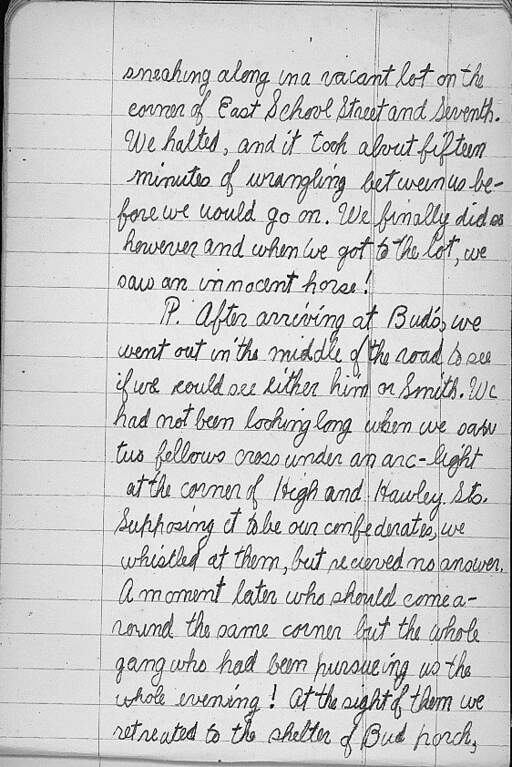 sneaking along in a vacant lot on the
corner of East School Street and Seventh.
We halted, and it took about fifteen
minutes of wrangling between us be-
fore we would go on. We finally did so
however and when we got to the lot, we
saw an innocent horse!
P. After arriving at Bud's, we
went out in the middle of the road to see
if we could see either him or Smith. We
had not been looking long when we saw
two fellows cross under an arc-light
at the corner of High and Hawley Sts.
Supposing it to be our confederates, we
whistled at them, but recieved no answer.
A moment later who should come a-
round the same corner but the whole
gang who had been pursueing us the
whole evening! At the sight of them we
retreated to the shelter of Bud porch,